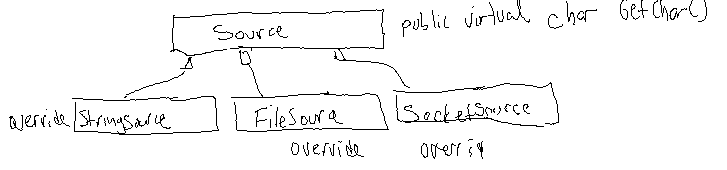 Source public virtual char GetChar()
override StringSource FileSource SocketSource
override overri